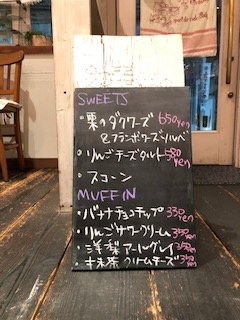 SWEETS
・栗のダクワーズ 650yen
&フランボワーズソルベ
・りんごチーズタルト 580yen
・スコーン
MUFFIN
・バナナチョコチップ 330yen
・りんごサワークリーム 350yen
・洋梨アールグレイ 350yen
・抹茶クリームチーズ 350yen